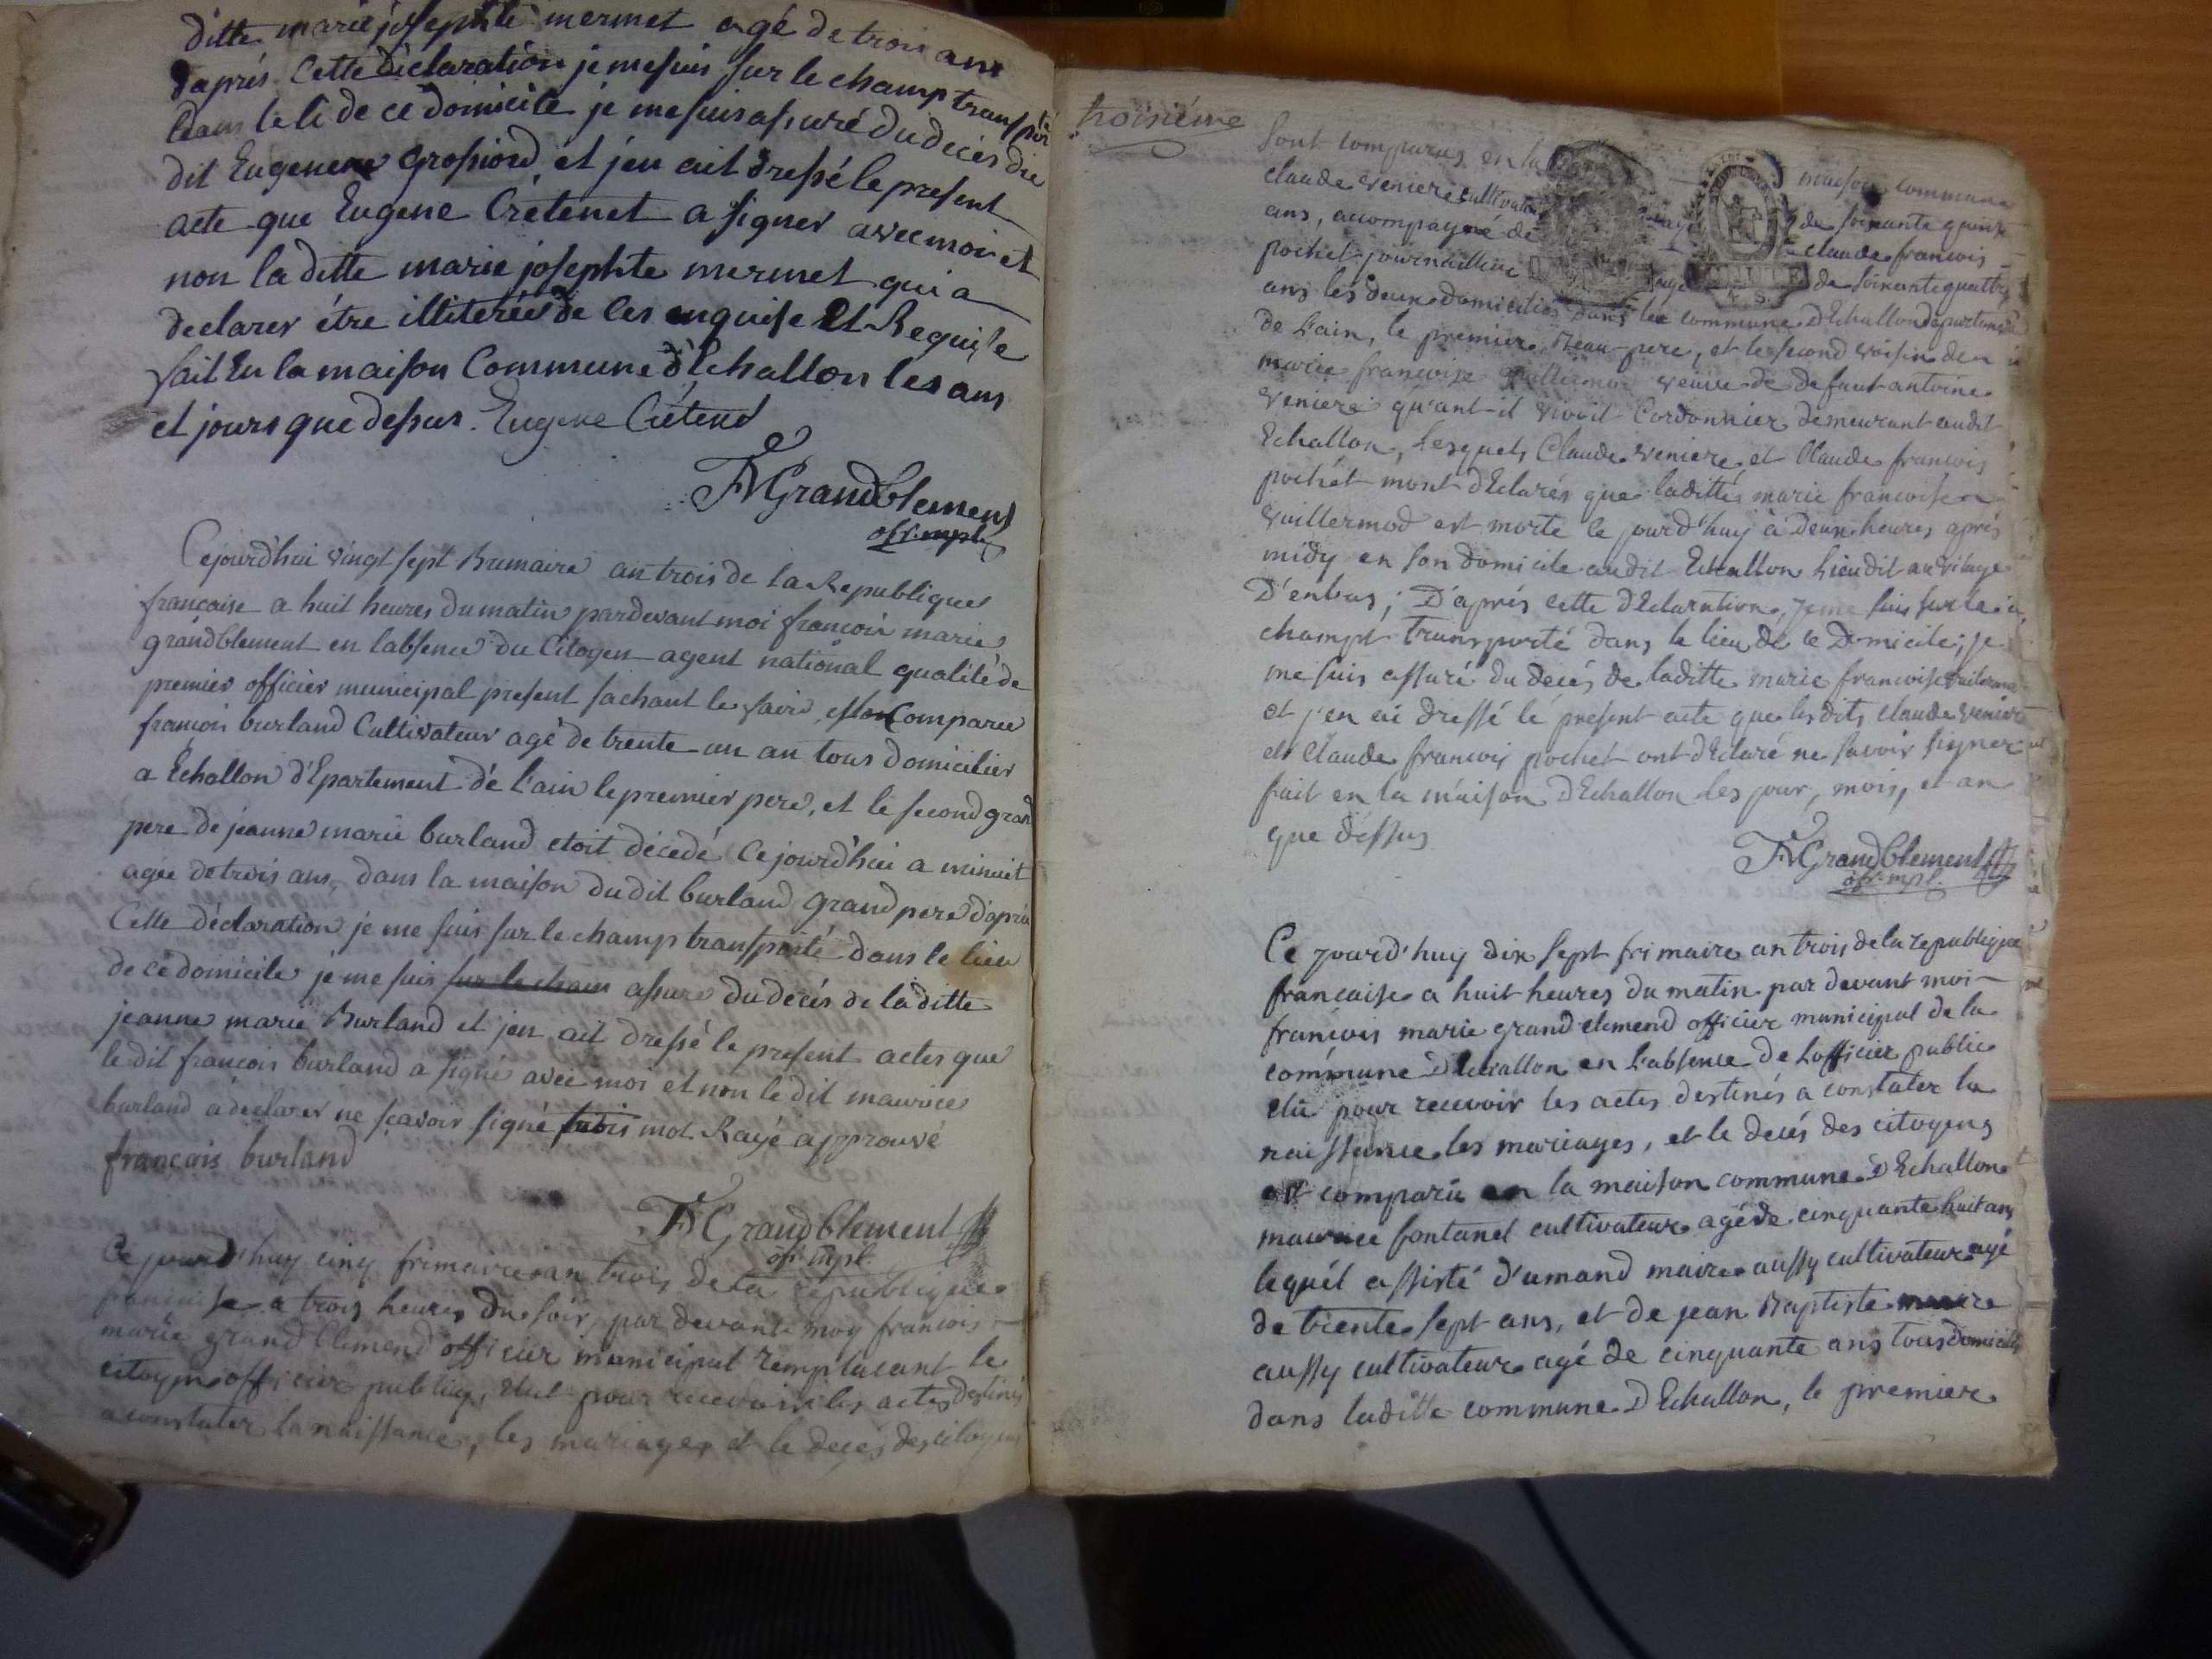 ditte marie josephte mermet agé de trois ans
daprés Cette déclaration je me suis sur le champ transporté
dans le li de ce domicile je me suis assuré du decés du
dit Eugene grossiord et jen ait dressé le present
acte que Eugene Crétenet a signer avec moi et
non la ditte marie josephte mermet qui a
declarer étre illiterée de les enquise Et Requise
fait En la maison Commune d'Echallon les ans
et jours que dessus. Eugene Crétenet
FM Grandclement
offr. mpl
Cejourd'hui vingt sept Brumaire an trois de la Republique
francaise a huit heures du matin pardevant moi francois marie
grandclement en labsence du Citoyen agent national qualité de
premier officier municipal present sachant le faire est Comparu
francois burland Cultivateur agé de trente un an tous domicilier
a Echallon d'Epartement de l'ain le premier pere, et le second grand
pere de jeanne marie burland etoit décédé Cejourd'hui a minuit
agée de trois ans, dans la maison du dit burland grand pere d'aprés
Cette déclaration je me suis sur le champ transporté dans le lieu
de ce domicile je me suis sur le cham assure du decés de la ditte
jeanne marie Burland et jen ait dressé le present actes que
le dit francois burland a signé avec moi et non le dit maurice
burland a declarer ne scavoir signé trois mot Rayé approuvé
francois burland
FM Grandclement
offr. mpl.
Ce jourd'huy cinq frimaire an trois de la republique
francaise a trois heures du soir par devant moy francois
marie grand Clemend officier municipal remplacant le
citoyen officier publiq, Elut pour recevoir les actes destinés
a constater la naissance, les mariages et le decés des citoyens
troisiéme
Sont comparus en la maison commune
claude veniere cultivateur agé de soixante quinze
ans, accompagné de claude francois
pochet journallier agé de soixante quattre
ans les deux domiciliés dans la commune d'Echallon departement
de L'ain, le premier Beau-pere, et le second voisin de
marie francoise veuve de defunt antoine
veniere quant-il vivoit Cordonnier demeurant audit
Echallon, Lesquels Claude veniere et Claude francois
pochet mont d'Eclarés que laditte marie francoise
vuillermod est morte le jourd'huy à deux heures aprés
midy en son domicile audit Echallon Lieudit au vilage
D'enbas; D'aprés cette d'Eclaration, je me suis sur le
champt transporté dans le lieu de ce Domicile; je
me suis assuré du decés de laditte marie francoise vuillermod
et j'en ai dressé le present acte que lesdits claude veniere
et Claude francois pochet ont d'Eclaré ne savoir signer
fait en la maison d'Echallon les jour, mois, et an
que dessus
FM Grandclement
offr. mpl.
Ce jourd'huy dix sept frimaire an trois de la republique
francaise a huit heures du matin par devant moi
francois marie grand clemend officier municipal de la
commune d'Echallon en L'absence de Lofficier public
elu pour recevoir les actes destinés a constater la
naissance les mariages, et le decés des citoyens
est comparu en la maison commune d'Echallon
maurice fontanel cultivateur agé de cinquante huit ans
lequél assisté d'amand maire aussy cultivateur agé
de trente sept ans, et de jean Baptiste maire
aussy cultivateur agé de cinquante ans tous domiciliés
dans laditte commune d'Echallon, le premier